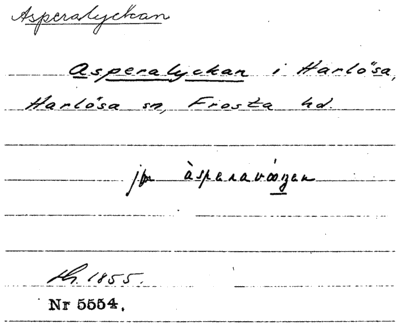 Asperalyckan
Asperalyckan i Harlösa,
Harlösa sn, Frosta hd.
jfr àsperavägen
1855.
Nr 5554.